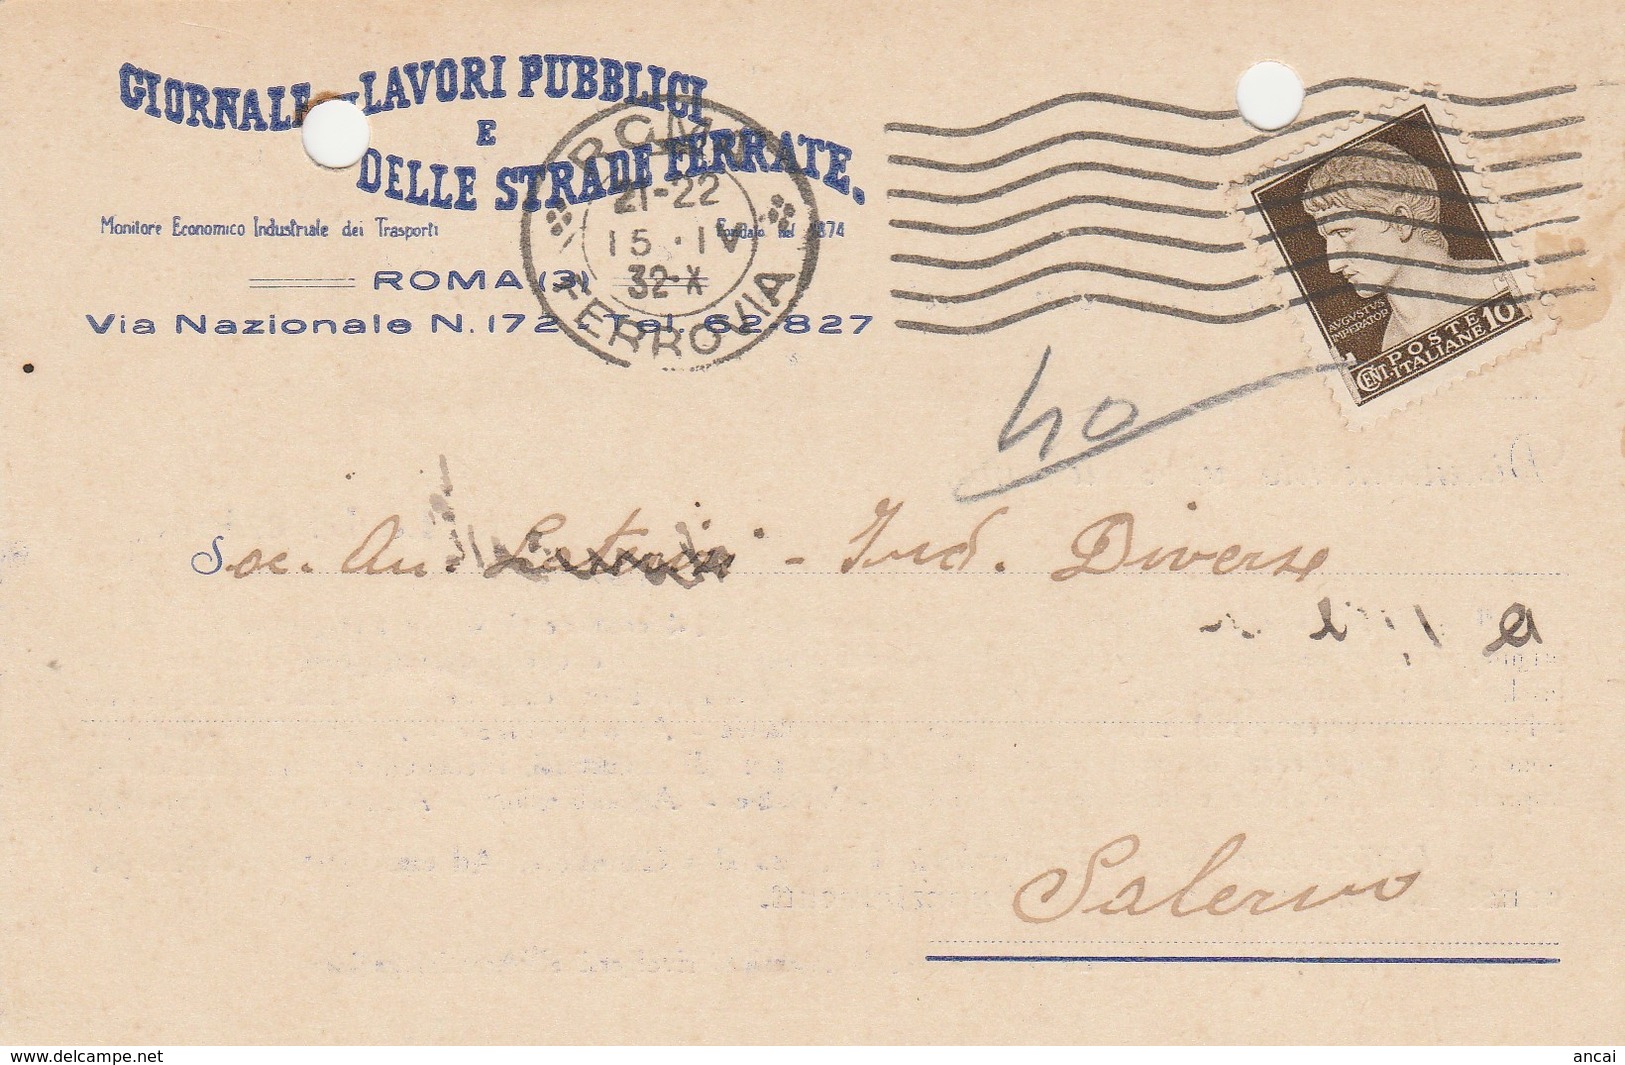 GIORNALE LAVORI PUBBLICI
E
DELLE STRADE FERRATE.
Monitore Economico Industriale dei Trasporti Fondato nel 1874
ROMA (3)
Via Nazionale N. 172 - Tel. 62-827
ROMA
21-22
15 · IV
32·X
FERROVIA
AVGVSTVS
IMPERATOR
POSTE
ITALIANE
CENT. 10
40
Soc. An. Laterizi - Ind. Diverse
Salerno
www.delcampe.net
ancai